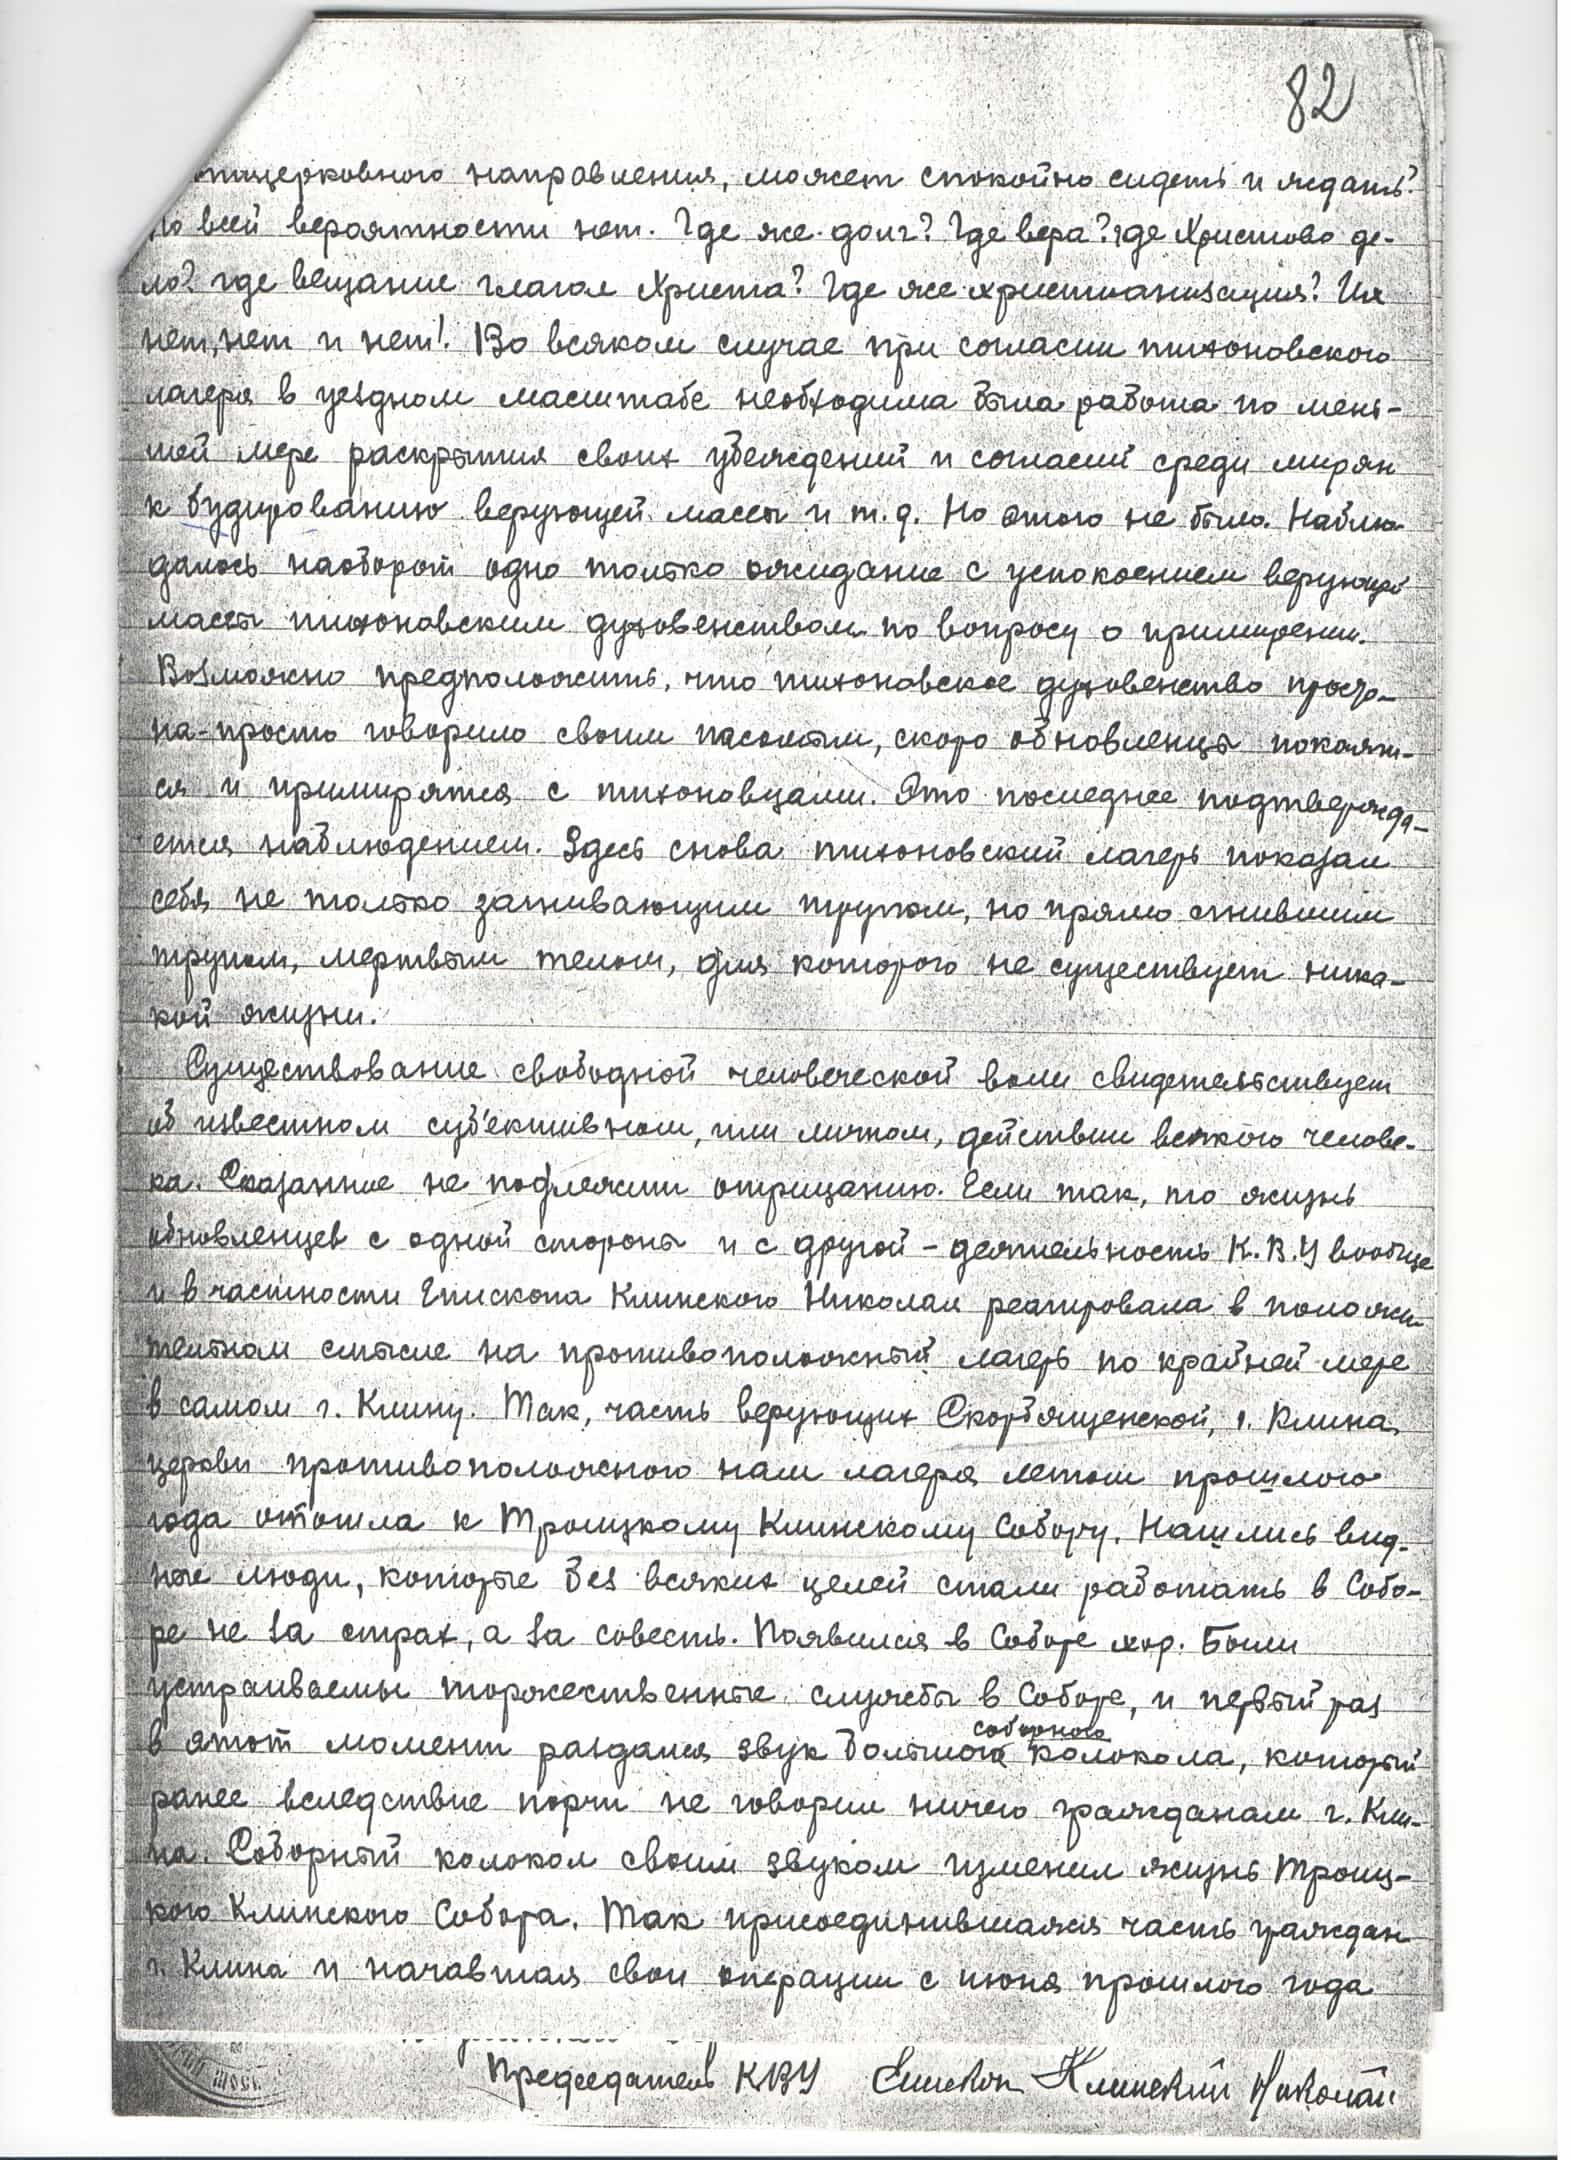 82
тицерковного направления, может спокойно сидеть и ждать?
По всей вероятности нет. Где же долг? Где вера? где Христово де-
ло? где вещание глагол Христа? Где же христианизация? Их
нет, нет и нет! Во всяком случае при согласии тихоновского
лагеря в уездном масштабе необходима была работа по мень-
шей мере раскрытия своих убеждений и согласий среди мирян
к будированию верующей массы и т.д. Но этого не было. Наблю-
далось наоборот одно только ожидание с успокоением верующей
массы тихоновским духовенством по вопросу о примирении.
Возможно предположить, что тихоновское духовенство просто-
на-просто говорило своим пасомым, скоро обновленцы покаят-
ся и примирятся с тихоновцами. Это последнее подтвержда-
ется наблюдением. Здесь снова тихоновский лагерь показал
себя не только загнивающим трупом, но прямо сгнившим
трупом, мертвым телом, для которого не существует ника-
кой жизни.
Существование свободной человеческой воли свидетельствует
об известном суб'ективном, или личном, действии всякого челове-
ка. Сказанное не подлежит отрицанию. Если так, то жизнь
обновленцев с одной стороны и с другой - деятельность К.В.У вообще
и в частности Епископа Клинского Николая реагировала в положи-
тельном смысле на противоположный лагерь по крайней мере
в самом г. Клину. Так, часть верующих Скорбященской, г. Клина,
церкви противоположного нам лагеря летом прошлого
года отошла к Троицкому Клинскому Собору. Нашлись вид-
ные люди, которые без всяких целей стали работать в Собо-
ре не за страх, а за совесть. Появился в Соборе хор. Были
устраиваемы торжественные службы в Соборе, и первый раз
в этот момент раздался звук большого соборного колокола, который
ранее вследствие порчи не говорил ничего гражданам г. Кли-
на. Соборный колокол своим звуком изменил жизнь Троиц-
кого Клинского Собора. Так присоединившаяся часть граждан
г. Клина и начавшая свои операции с июня прошлого года
Председатель КВУ Епископ Клинский Николай